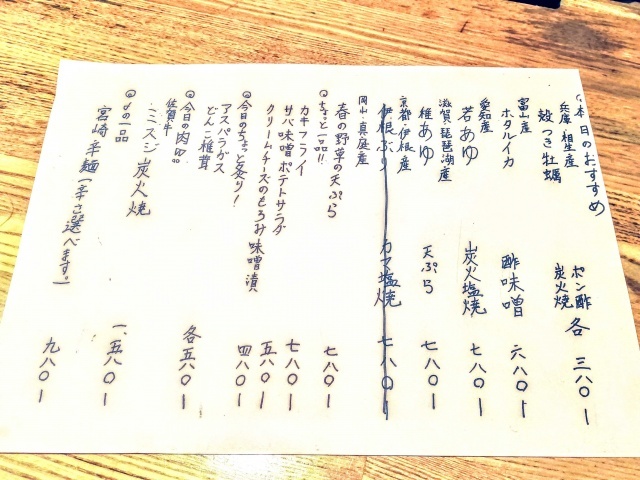 ◎本日のおすすめ
兵庫 相生産
殻つき牡蠣 ポン酢 炭火焼 各 三八〇ー
富山産
ホタルイカ 酢味噌 六八〇ー
愛知産
若あゆ 炭火塩焼 七八〇ー
滋賀・琵琶湖産
稚あゆ 天ぷら 七八〇ー
京都・伊根産
伊根ぶり カマ塩焼 七八〇ー
岡山・真庭産
春の野草の天ぷら 七八〇ー
◎ちょっと一品!!
カキフライ 七八〇ー
サバ味噌ポテトサラダ 五八〇ー
クリームチーズのもろみ味噌漬 四八〇ー
◎今日のちょっと炙り!
アスパラガス
どんこ椎茸 各五八〇ー
◎今日の肉品
佐賀牛
ミスジ 炭火焼 一、五八〇ー
◎〆の一品
宮崎辛麺(辛さ選べます。) 九八〇ー